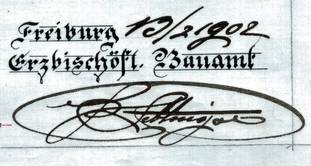 Freiburg 13/2 1902
Erzbischöfl. Bauamt